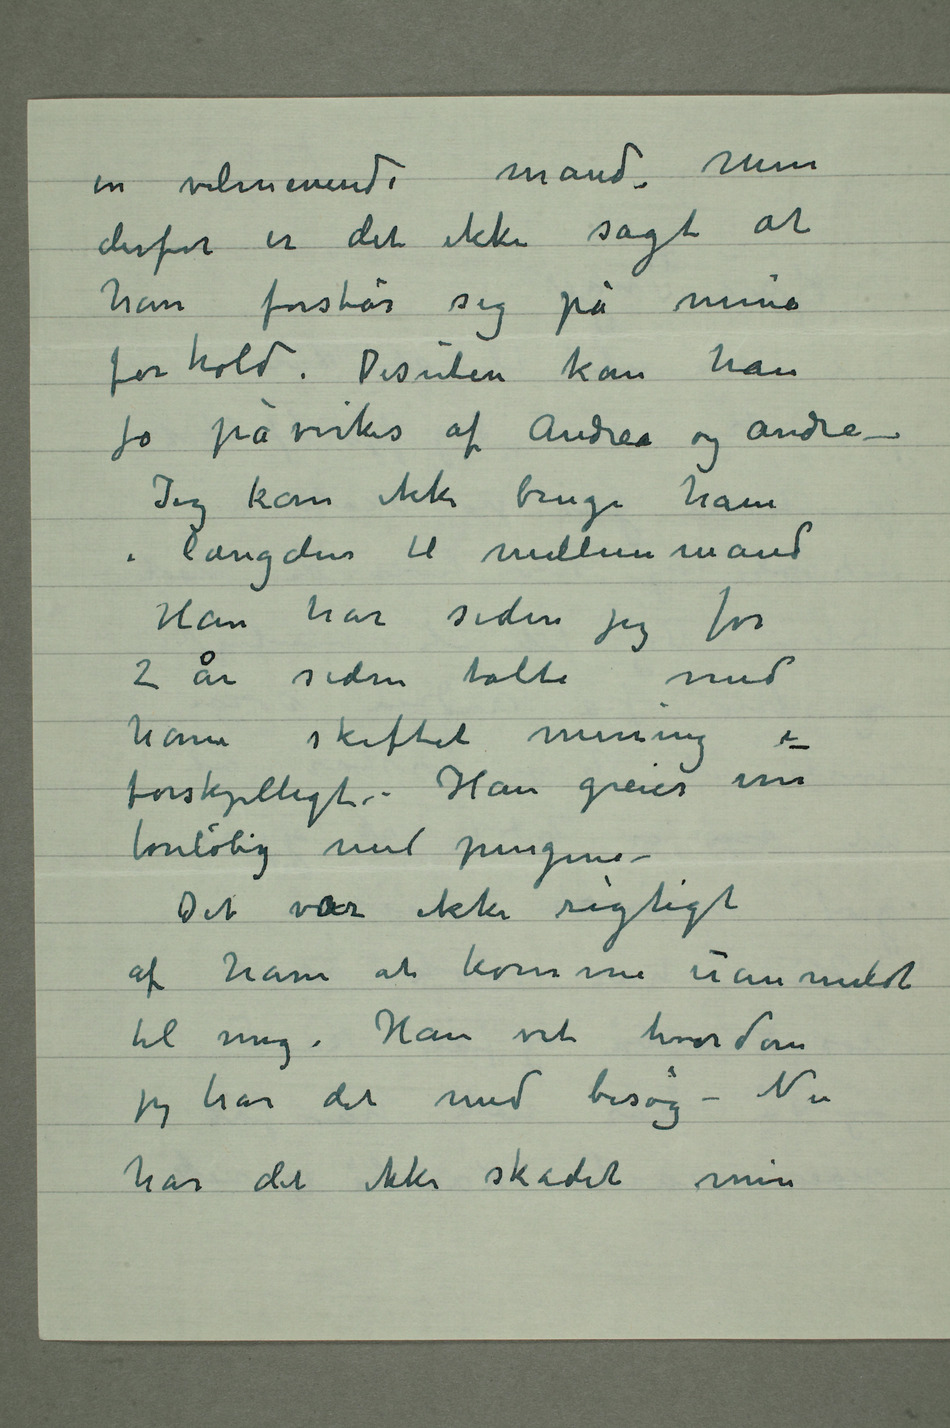 en velmenende mand. Men
derfor er det ikke sagt at
han forstår sig på mine
forhold. Desuten kan han
jo påvirkes af Andrea og andre –
Jeg kan ikke bruge ham
i længden til mellemmand
Han har siden jeg for
2 år siden talte med
ham skiftet mening –
forskjelligt. – Han greier
foreløbig med pengene –
Det var ikke rigtigt
af ham at komme uanmeldt
til mig. Han vet hvordan
jeg har det med besøg – Nu
har det ikke skadet men